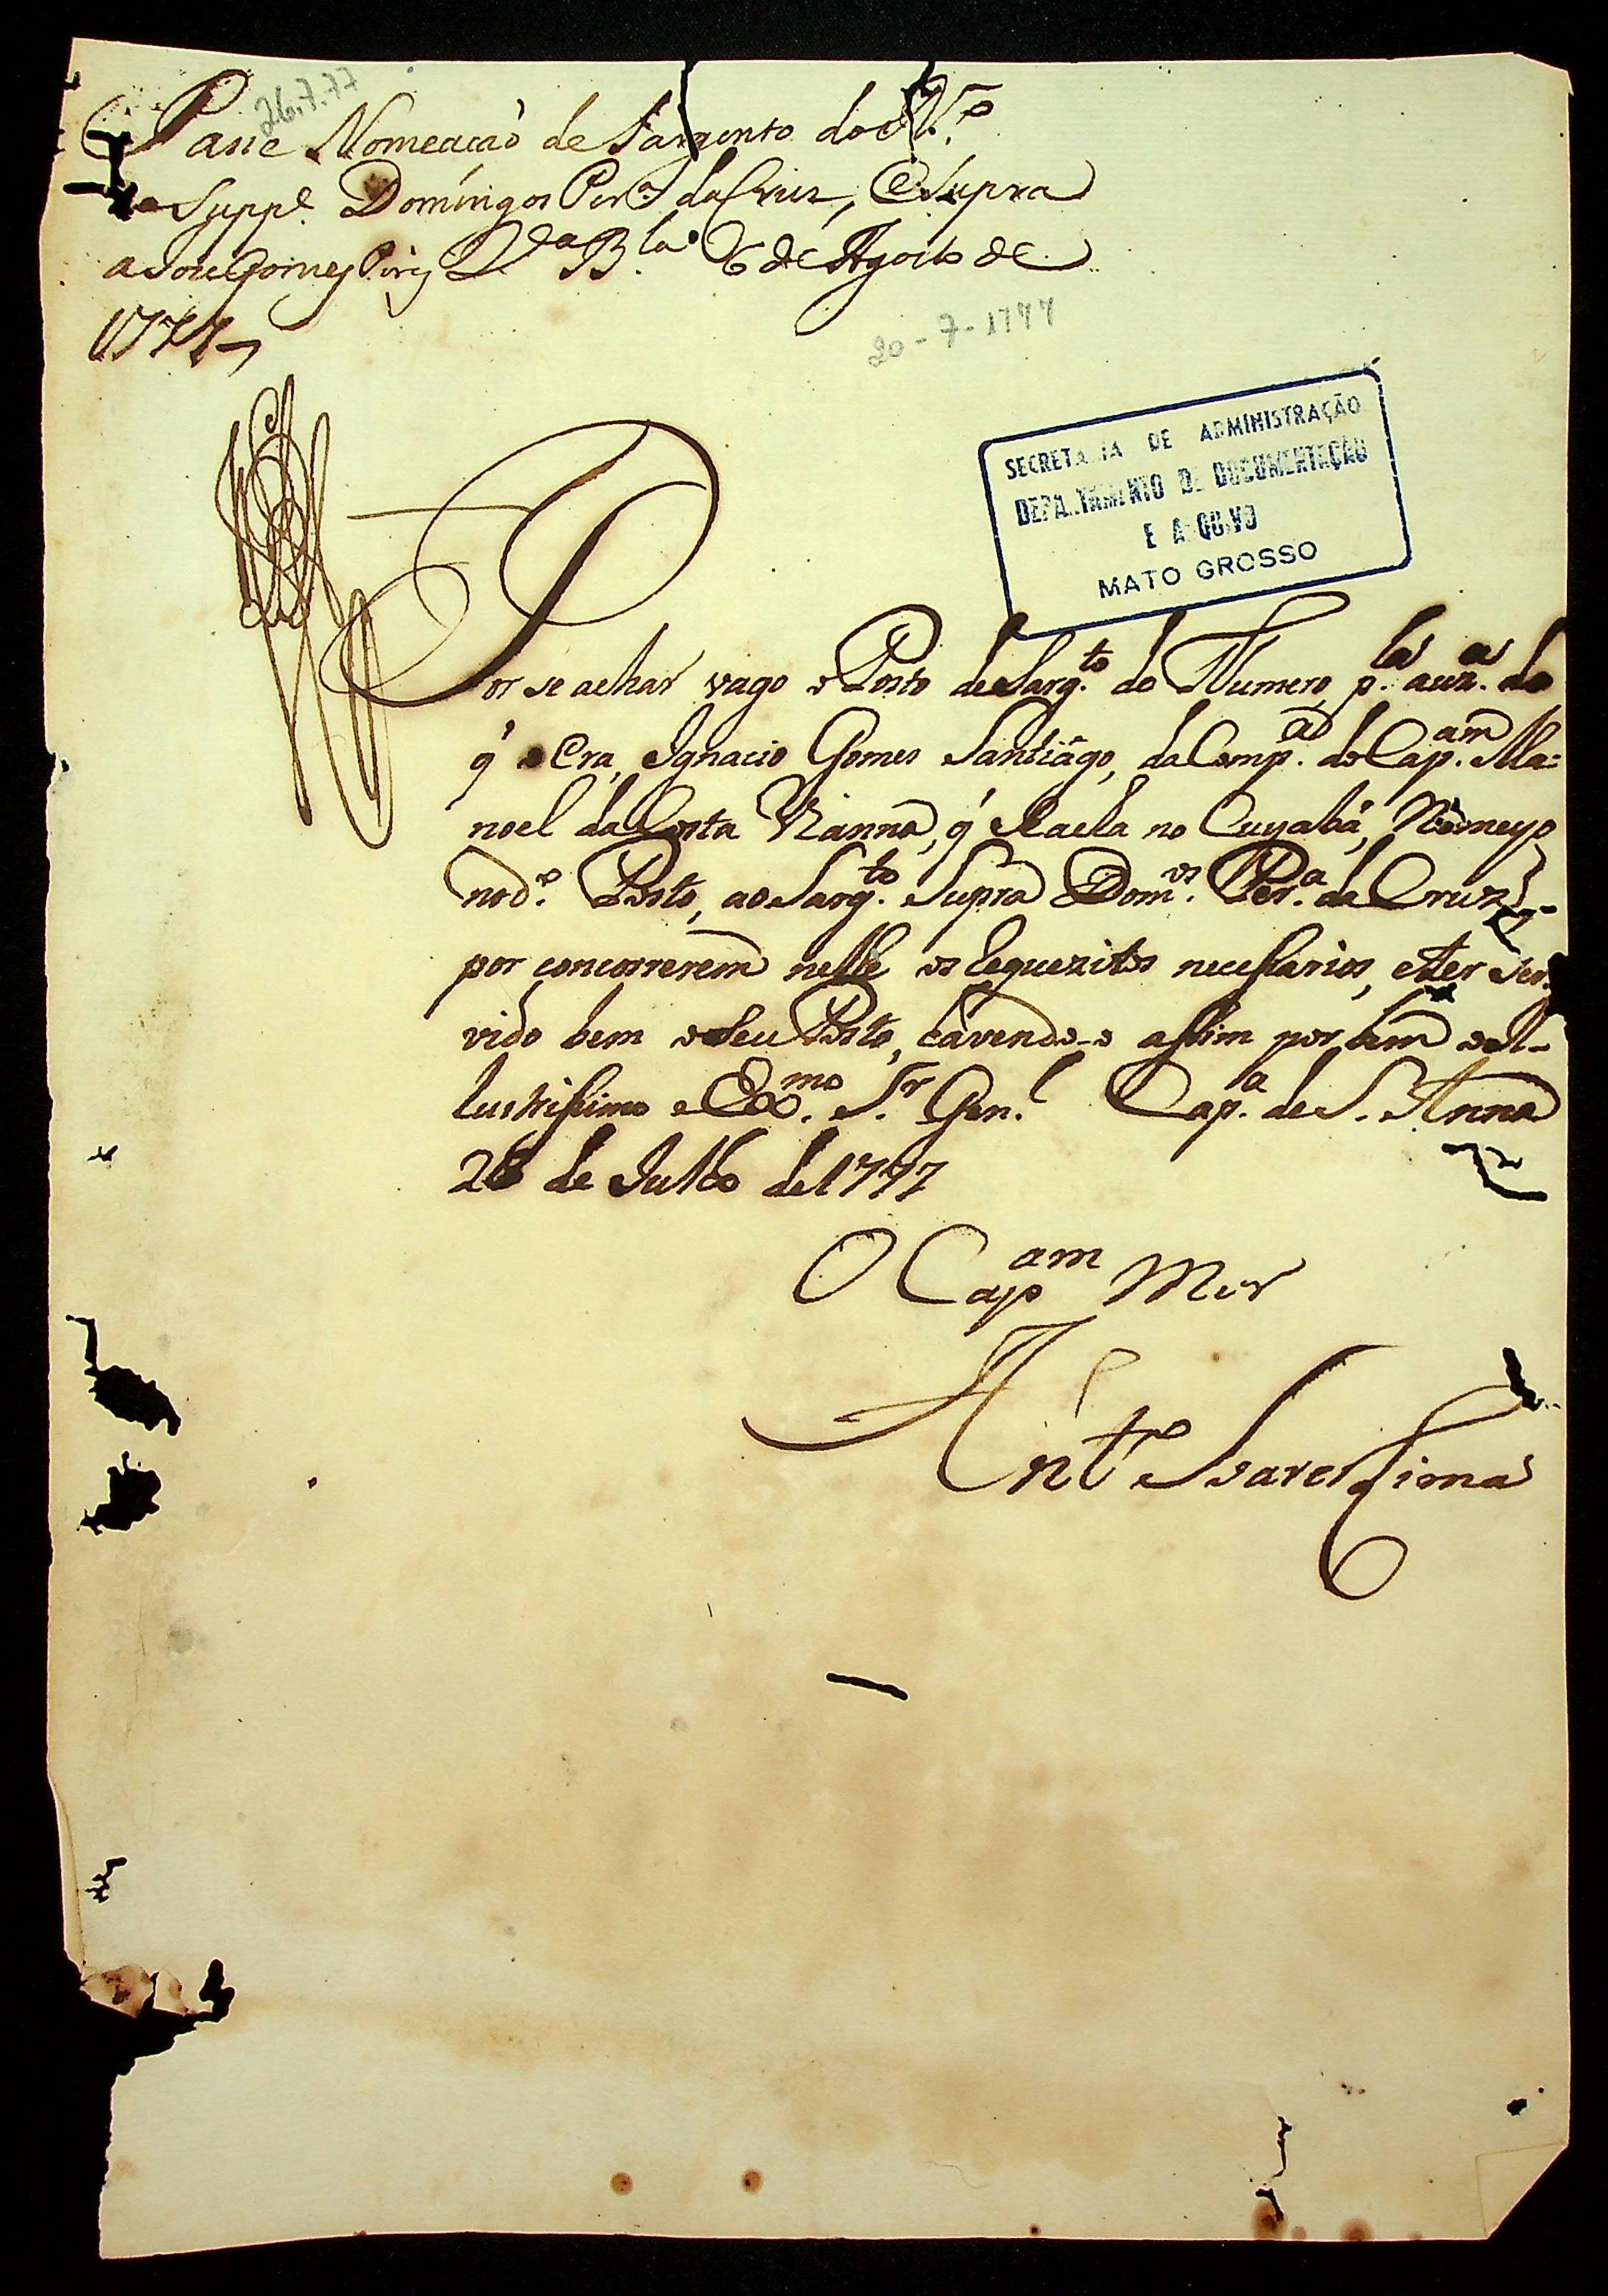 26.7.77
Passe Nomeacaõ de Sargento do N.º
Supp.e Domingos Per.a da Cruz, e Supra
a Jose Gomes Pirs V.a B.la 6 de Agosto de
1777
20-7-1777
SECRETARIA DE ADMINISTRAÇÃO
DEPARTAMENTO DE DOCUMENTAÇÃO
E ARQUIVO
MATO GROSSO
Por se achar vago o Posto de Sarg.to do Numero, p.la auz.a do
q' o Era, Ignacio Gomes Santiago, da Comp.a do Cap.am Ma=
noel da Costa Vianna, q' se acha no Cuyabá, Nomeyo
no d.o Posto, ao Sarg.to Supra Dom.os Per.a da Cruz
por concorrerem nelle os Requezitos necessarios, e ter ser-
vido bem o seu Posto, havendo-o assim por bem o Il-
lustrissimo e Ex.mo S.r Gen.l Cap.a de S. Anna
26 de Julho de 1777
O Cap.am Mor
Ant.o Soares Lima